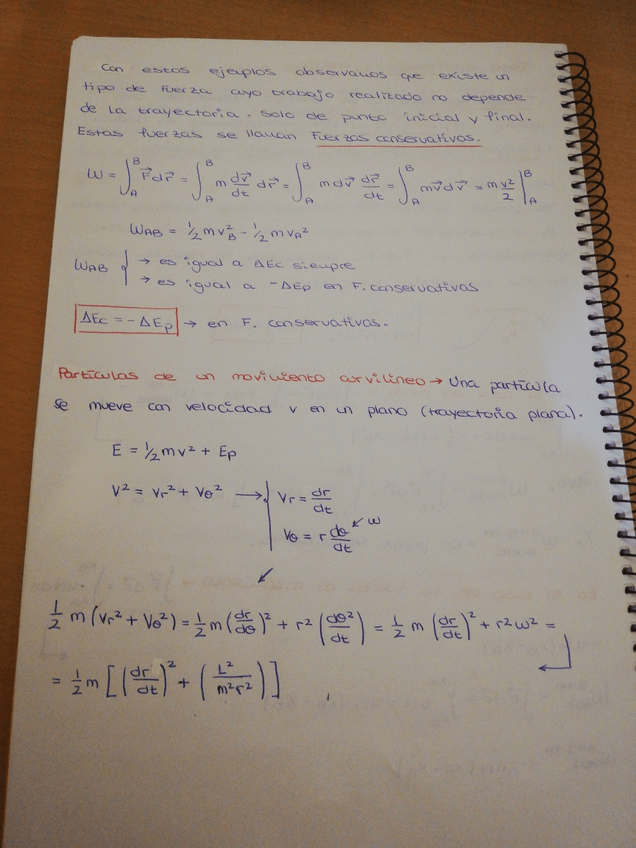 Con estos ejemplos observamos qe existe un
tipo de fuerza cuyo trabajo realizado no depende
de la trayectoria. Solo de punto inicial y final.
Estas fuerzas se llaman Fuerzas conservativas.
W = ∫_A^B F⃗ dr⃗ = ∫_A^B m dv⃗/dt dr⃗ = ∫_A^B m dv⃗ dr⃗/dt = ∫_A^B mv⃗ dv⃗ = m v²/2 |_A^B
W_AB = 1/2 m v_B² - 1/2 m v_A²
W_AB { → es igual a ΔEc siempre
→ es igual a -ΔEp en F. conservativas
ΔEc = -ΔEp → en F. conservativas.
Partículas de un movimiento curvilíneo → Una partícula
se mueve con velocidad v en un plano (trayectoria plana).
E = 1/2 mv² + Ep
V² = Vr² + Vθ² → | Vr = dr/dt
Vθ = r dθ/dt ↙ w
↙
1/2 m (Vr² + Vθ²) = 1/2 m (dr/dθ)² + r² (dθ²/dt) = 1/2 m (dr/dt)² + r² w² =
= 1/2 m [(dr/dt)² + (L²/m²r²)]